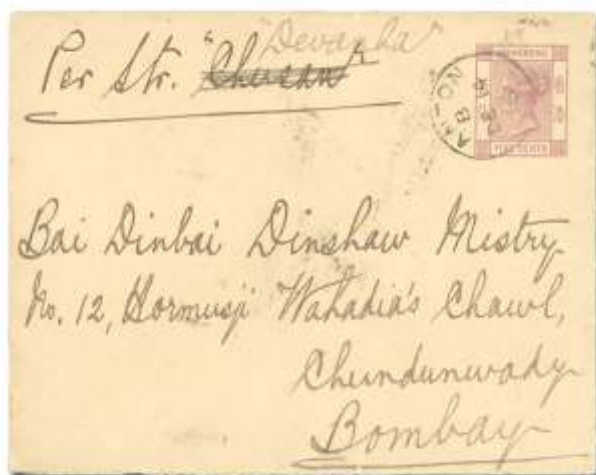 "Devanha"
Per Str. "Chusan"
HONG KONG
FIVE CENTS
Bai Dinbai Dinshaw Mistry
No. 12, Hormusji Wahadia's Chawl,
Chundunwady
Bombay